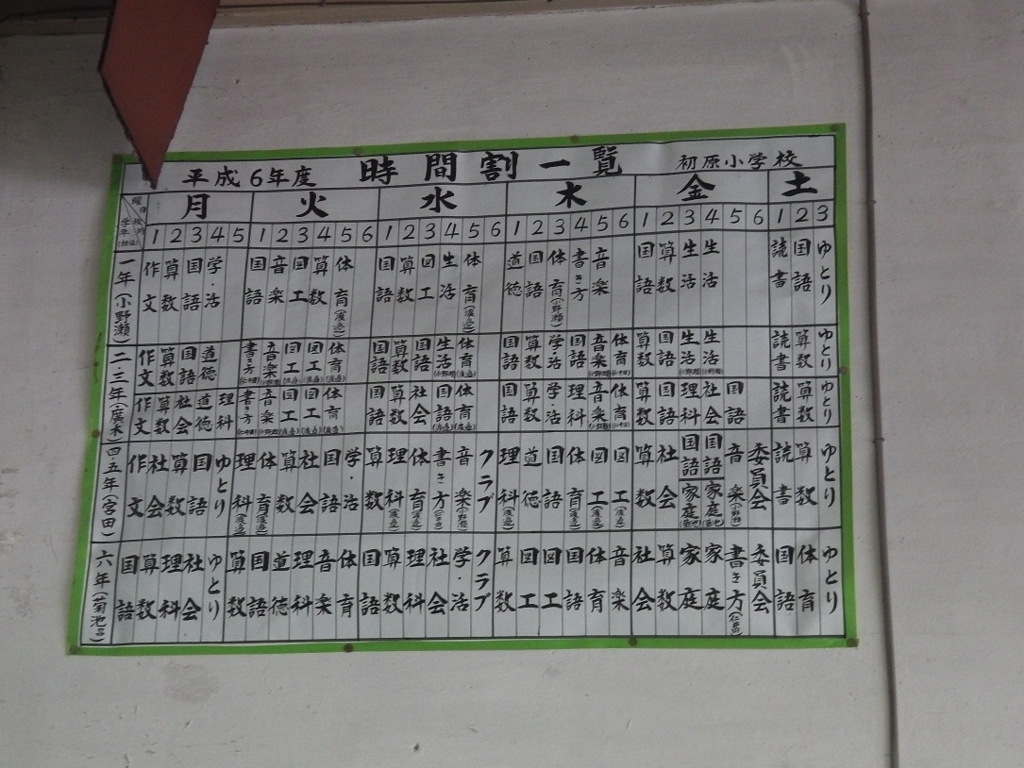 平成6年度 時間割一覧 初原小学校
曜日 月 火 水 木 金 土
学年 1 2 3 4 5 1 2 3 4 5 6 1 2 3 4 5 6 1 2 3 4 5 6 1 2 3 4 5 6 1 2 3
一年(小野瀬) 作文 算数 国語 学・活 国語 音楽 図工 算数 体育 国語 算数 図工 生活 体育 道徳 国語 体育 書き方 音楽 国語 算数 生活 生活 読書 国語 ゆとり
二三年 作文 算数 国語 道徳 書き方 音楽 図工 図工 体育 国語 算数 国語 生活 体育 国語 算数 学・活 国語 音楽 体育 算数 国語 生活 生活 読書 算数 ゆとり
作文 算数 社会 道徳 理科 書き方 音楽 図工 図工 体育 国語 算数 社会 国語 体育 国語 算数 学・活 理科 音楽 体育 算数 国語 理科 社会 国語 読書 算数 ゆとり
四五年(宮田) 作文 社会 算数 国語 ゆとり 理科 体育 算数 社会 国語 学・活 算数 理科 体育 書き方 音楽 クラブ 理科 道徳 国語 体育 図工 図工 算数 社会 国語 家庭 国語 家庭 音楽 委員会 読書 算数 ゆとり
六年(菊池三) 国語 算数 理科 社会 ゆとり 算数 国語 道徳 理科 音楽 体育 国語 算数 理科 社会 学・活 クラブ 算数 図工 図工 国語 体育 音楽 社会 算数 家庭 家庭 書き方 委員会 国語 体育 ゆとり